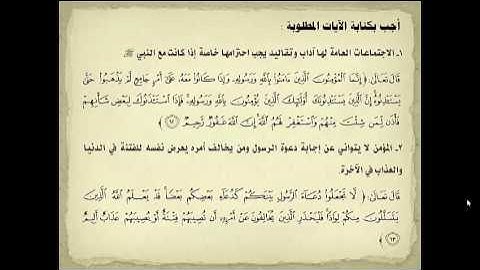 أجب بكتابة الآيات المطلوبة :
١ـ الاجتماعات العامة لها آداب وتقاليد يجب احترامها خاصة إذا كانت مع النبي ﷺ
قال تعالى ( إِنَّمَا الْمُؤْمِنُونَ الَّذِينَ ءَامَنُوا بِاللَّهِ وَرَسُولِهِ وَإِذَا كَانُوا مَعَهُ عَلَىٰ أَمْرٍ جَامِعٍ لَّمْ يَذْهَبُوا حَتَّىٰ
يَسْتَـْٔذِنُوهُ إِنَّ الَّذِينَ يَسْتَـْٔذِنُونَكَ أُولَٰئِكَ الَّذِينَ يُؤْمِنُونَ بِاللَّهِ وَرَسُولِهِ فَإِذَا اسْتَـْٔذَنُوكَ لِبَعْضِ شَأْنِهِمْ
فَأْذَن لِّمَن شِئْتَ مِنْهُمْ وَاسْتَغْفِرْ لَهُمُ اللَّهَ إِنَّ اللَّهَ غَفُورٌ رَّحِيمٌ )
٢ـ المؤمن لا يتوانى عن إجابة دعوة الرسول ومن يخالف أمره يعرض نفسه للفتنة في الدنيا
والعذاب في الآخرة.
قال تعالى ( لَّا تَجْعَلُوا دُعَاءَ الرَّسُولِ بَيْنَكُمْ كَدُعَاءِ بَعْضِكُم بَعْضًا قَدْ يَعْلَمُ اللَّهُ الَّذِينَ
يَتَسَلَّلُونَ مِنكُمْ لِوَاذًا فَلْيَحْذَرِ الَّذِينَ يُخَالِفُونَ عَنْ أَمْرِهِ أَن تُصِيبَهُمْ فِتْنَةٌ أَوْ يُصِيبَهُمْ عَذَابٌ أَلِيمٌ
٦٣ )